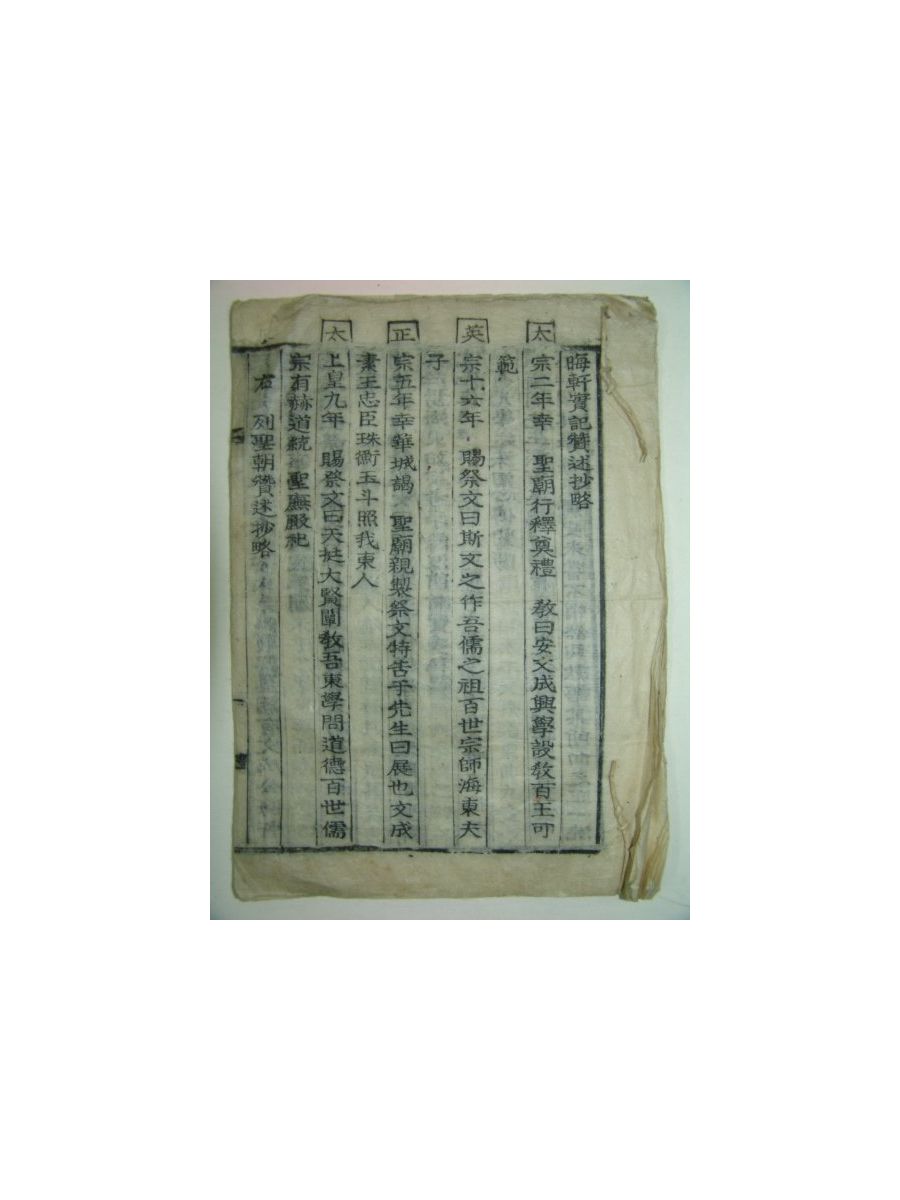 晦軒實記贊述抄略
太
宗二年幸 聖廟行釋奠禮 敎曰安文成興學設敎百王可
範
英
宗十六年 賜祭文曰斯文之作吾儒之祖百世宗師海東夫
子
正
宗五年幸華城謁 聖廟親製祭文特告于先生曰展也文成
素王忠臣珠衡玉斗照我東人
太
上皇九年 賜祭文曰天挺大賢闡敎吾東學問道德百世儒
宗有赫道統 聖廡殷祀
右 列聖朝贊述抄略